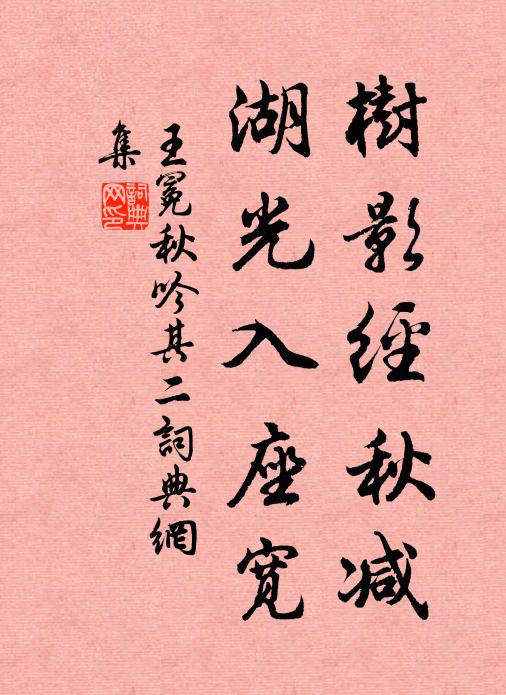 樹影經秋減
湖光入座寬
王冕秋吟其二詞典網
集
詞典
网印